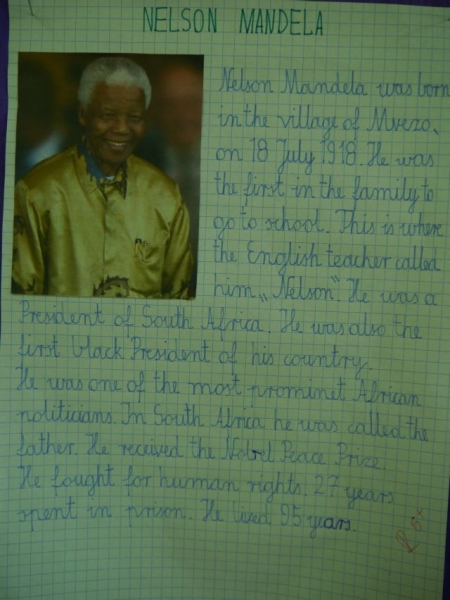 NELSON MANDELA
Nelson Mandela was born
in the village of Mvezo,
on 18 July 1918. He was
the first in the family to
go to school. This is where
the English teacher called
him „Nelson". He was a
President of South Africa. He was also the
first black President of his country.
He was one of the most prominet African
politicians. In South Africa he was called the
father. He received the Nobel Peace Prize.
He fought for human rights. 27 years
spent in prison. He lived 95 years.